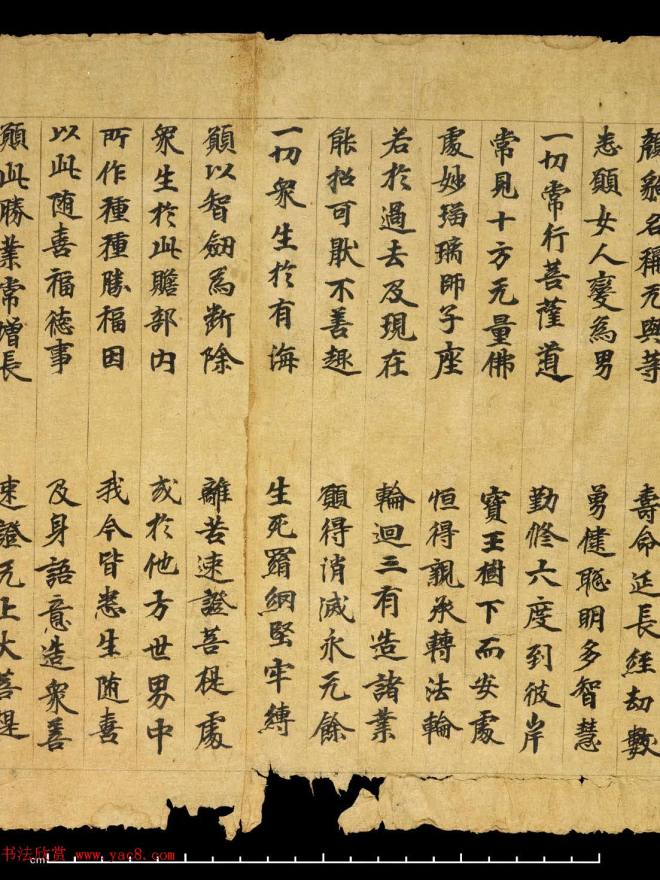 顏皃名稱无與等　壽命延長經劫數
悉願女人變為男　勇健聡明多智慧
一切常行菩薩道　勤修六度到彼岸
常見十方无量佛　寶王樹下而安處
處妙瑠璃師子座　恒得親承轉法輪
若於過去及現在　輪迴三有造諸業
能招可猒不善趣　願得消滅永无餘
一切衆生於有海　生死羂網堅牢縛
願以智劒為斷除　離苦速證菩提處
衆生於此贍部內　或於他方世界中
所作種種勝福因　我今皆悉生随喜
以此随喜福德事　及身語意造衆善
願此勝業常增長　速證无上大菩提
书法欣赏 www.yac8.com
cm